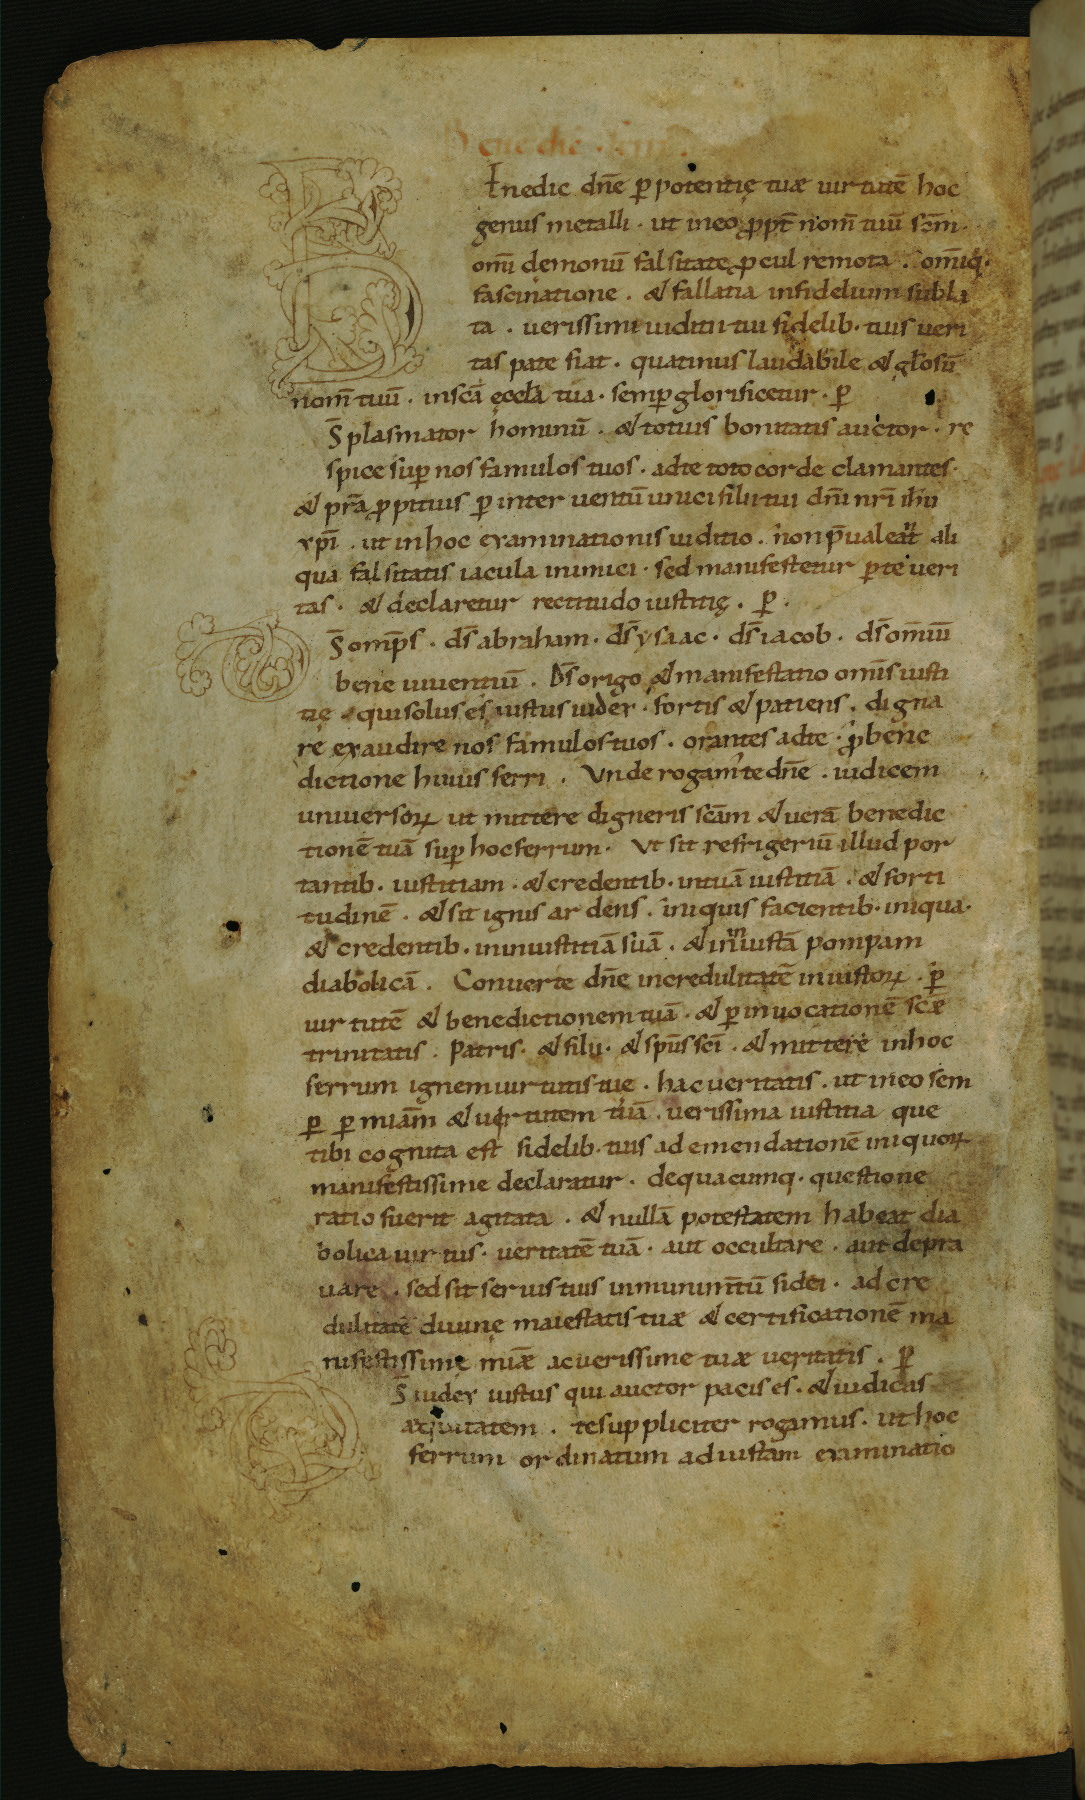 Benedic ferri.
Enedic dn̄e ꝑ potentię tuæ uirtutē hoc
genus metalli · ut in eo ꝓpt̄ nom̄ tuū sc̄m ·
om̄i demonū falsitate ꝓcul remota . om̄iq·
fascinatione . & fallatia infidelium subla
ta . uerissimi iuditii tui fidelib· tuis ueri
tas pate fiat . quatinus laudabile & gl̄osū
nom̄ tuū . in scā ęccl̄a tua · semꝑ glorificetur · ꝑ
S̄ plasmator hominū . & totius bonitatis auctor · re
spice suꝑ nos famulos tuos · ad te toto corde clamantes ·
& pr̄a ꝓpitius ꝑ interuentū unici filii tui dn̄i nr̄i ih̄u
xp̄i . ut in hoc examinationis iuditio . non p̄ualeat ali
qua falsitatis iacula inimici · sed manifestetur ꝑ te ueri
tas · & declaretur rectitudo iustitię . ꝑ ·
S̄ omp̄s . ds̄ abraham · ds̄ ysaac · ds̄ iacob . ds̄ om̄iū
bene uiuentiū . Ds̄ origo & manifestatio om̄is iusti
tię · qui solus es iustus iudex · fortis & patiens . digna
re exaudire nos famulos tuos . orantes ad te · ꝓ bene
dictione huius ferri . Vnde rogam᾿ te dn̄e . iudicem
uniuersoꝝ ut mittere digneris scām & uerā benedic
tionē tuā suꝑ hoc ferrum · Vt sit refrigeriū illud por
tantib· iustitiam · & credentib· in tuā iustitiā . & forti
tudinē . & sit ignis ardens . iniquis facientib· iniqua ·
& credentib· in iniustitiā suā . & in iniustā pompam
diabolicā . Conuerte dn̄e incredulitatē iniustoꝝ . ꝑ
uirtutē & benedictionem tuā . & ꝑ inuocationē scæ
trinitatis . Patris · & filii · & sp̄us sc̄i . & mittere in hoc
ferrum ignem uirtutis tue . hac ueritatis . ut in eo sem
ꝑ ꝑ miam̄ & uirtutem tuā . uerissima iustitia que
tibi cognita est fidelib· tuis ad emendationē iniquoꝝ
manifestissime declaratur . de quacumq· questione
ratio fuerit agitata . & nullā potestatem habeat dia
bolica uirtus · ueritatē tuā . aut occultare . aut depra
uare . sed sit seruis tuis in munim̄tū fidei . ad cre
dulitatē diuinę maiestatis tuæ & certificationē ma
nifestissime miæ ac uerissime tuæ ueritatis . ꝑ
S̄ iudex iustus qui auctor pacis es . & iudicas
æquitatem . te suppliciter rogamus . ut hoc
ferrum ordinatum ad iustam examinatio